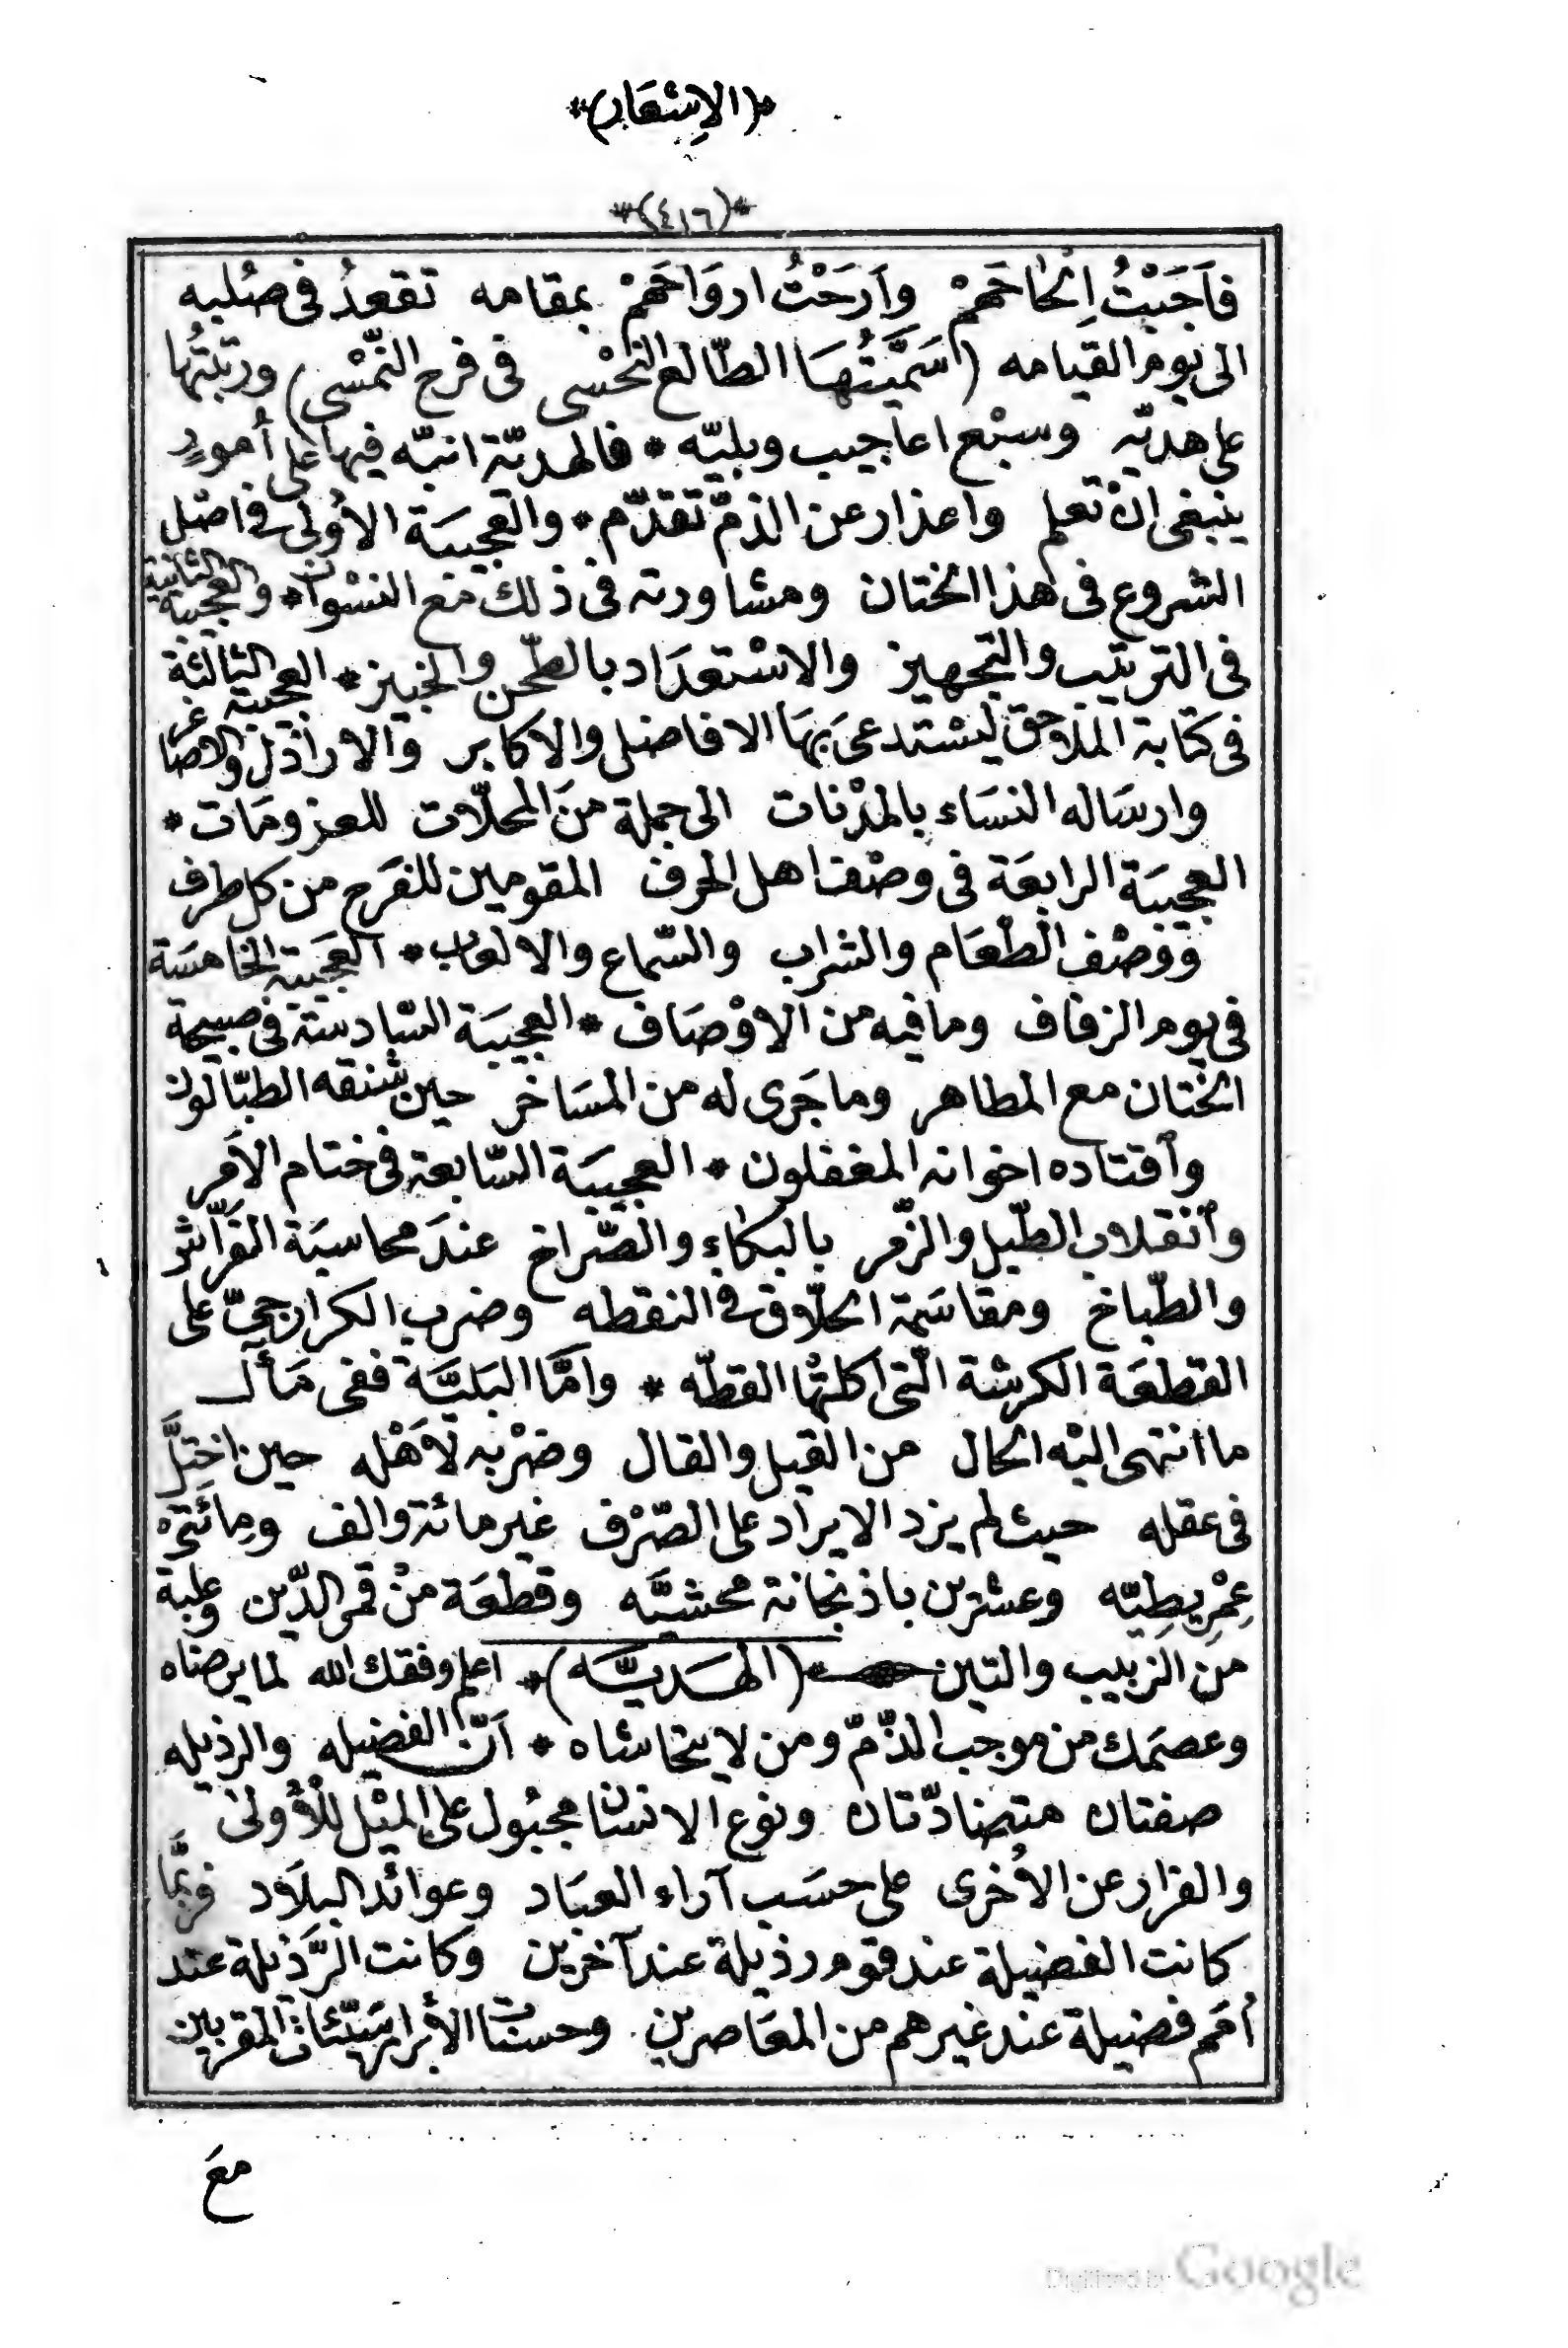 *(الاِشعَار)*
*(٤١٦)*
فاَجَبْتُ اِلْحاحَهمْ واَرَحْتُ اروَاحَهمْ بمقامه تقعدُ فى صُلبه
الى يوم القيامه (سَمَّيْتُهَا الطّالع النّحْسى فى فرح النّمْسى) ورتبْتُها
على هديّه وسبْع اعاجيب وبليّه * فالهديّة انبّه فيها على اُمورٍ
ينبغى انْ تعلم واعذار عن الذمّ تقدّم * والعجيبَة الاُولى فى اصْل
الشروع فى هذا الختان ومشاورته فى ذلك مَع النسْوان * والعجيبة الثانية
فى الترتيب والتجهيز والاسْتعدَاد بالطّحن والخبيز * العجيبة الثالثة
فى كتابة الملاحق ليسْتدعىَ بهَا الافاضل والاكابر والاراذل والاصاغر
وارسَاله النسَاء بالمدْنات الى جملة منَ المحلّات للعزومَات *
العجيبَة الرابعَة فى وصْف اهل الحرف المقومين للفرَح من كل طرف
ووصْف الطعَام والشراب والسّماع والالعاب * العجيبَة الخامسَة
فى يوم الزفاف وما فيه من الاوْصَاف * العجيبَة السّادسَة فى صبيحة
الختان مع المطاهر وما جَرى له من المسَاخر حين شنقه الطبّالون
واقتاده اخوانه المغفلون * العجيبَة السّابعة فى ختام الاَمر
وانقلاب الطّبل والزّمر بالبكاءِ والصّراخ عندَ محاسبَة الفرّاش
والطّباخ ومقاسَمة الحلّاق فى النقطه وضرب الكرارجىّ على
القطعَة الكرشة الّتى اكلتْها القطّه * وامَّا البَليَّة ففى مَآل
ما انتهى اليْه الحال من القيل والقال وضرْبه لاَهْله حين اختلَّ
فى عقله حيث لم يزد الايراد على الصّرْف غير مائة والف ومائتىْ
عِمْرِيطِيّه وعشرين باذنجانة محشيَّه وقطعَة منْ قمر الدّين وعلبة
من الزبيب والتين *(الهَديَّه)* اعلم وفقك الله لما يرضاه
وعصمَك من موجب الذّمّ ومن لا يتحاشاه * اَنّ الفضيله والرذيله
صفتان متضادّتان ونوع الانسان مجبُول على الميْل للاُولى
والفرار عن الاُخرى على حسَب آراء العبَاد وعوائد البلاَد فربَّما
كانت الفضيلة عند قوم رذيلة عند آخرين وكانت الرَّذيلة عند
اُمَم فضيلة عند غيرهم من المعَاصرين وحسنات الأبرار سَيّئات المقربين
معَ
Digitized by Google